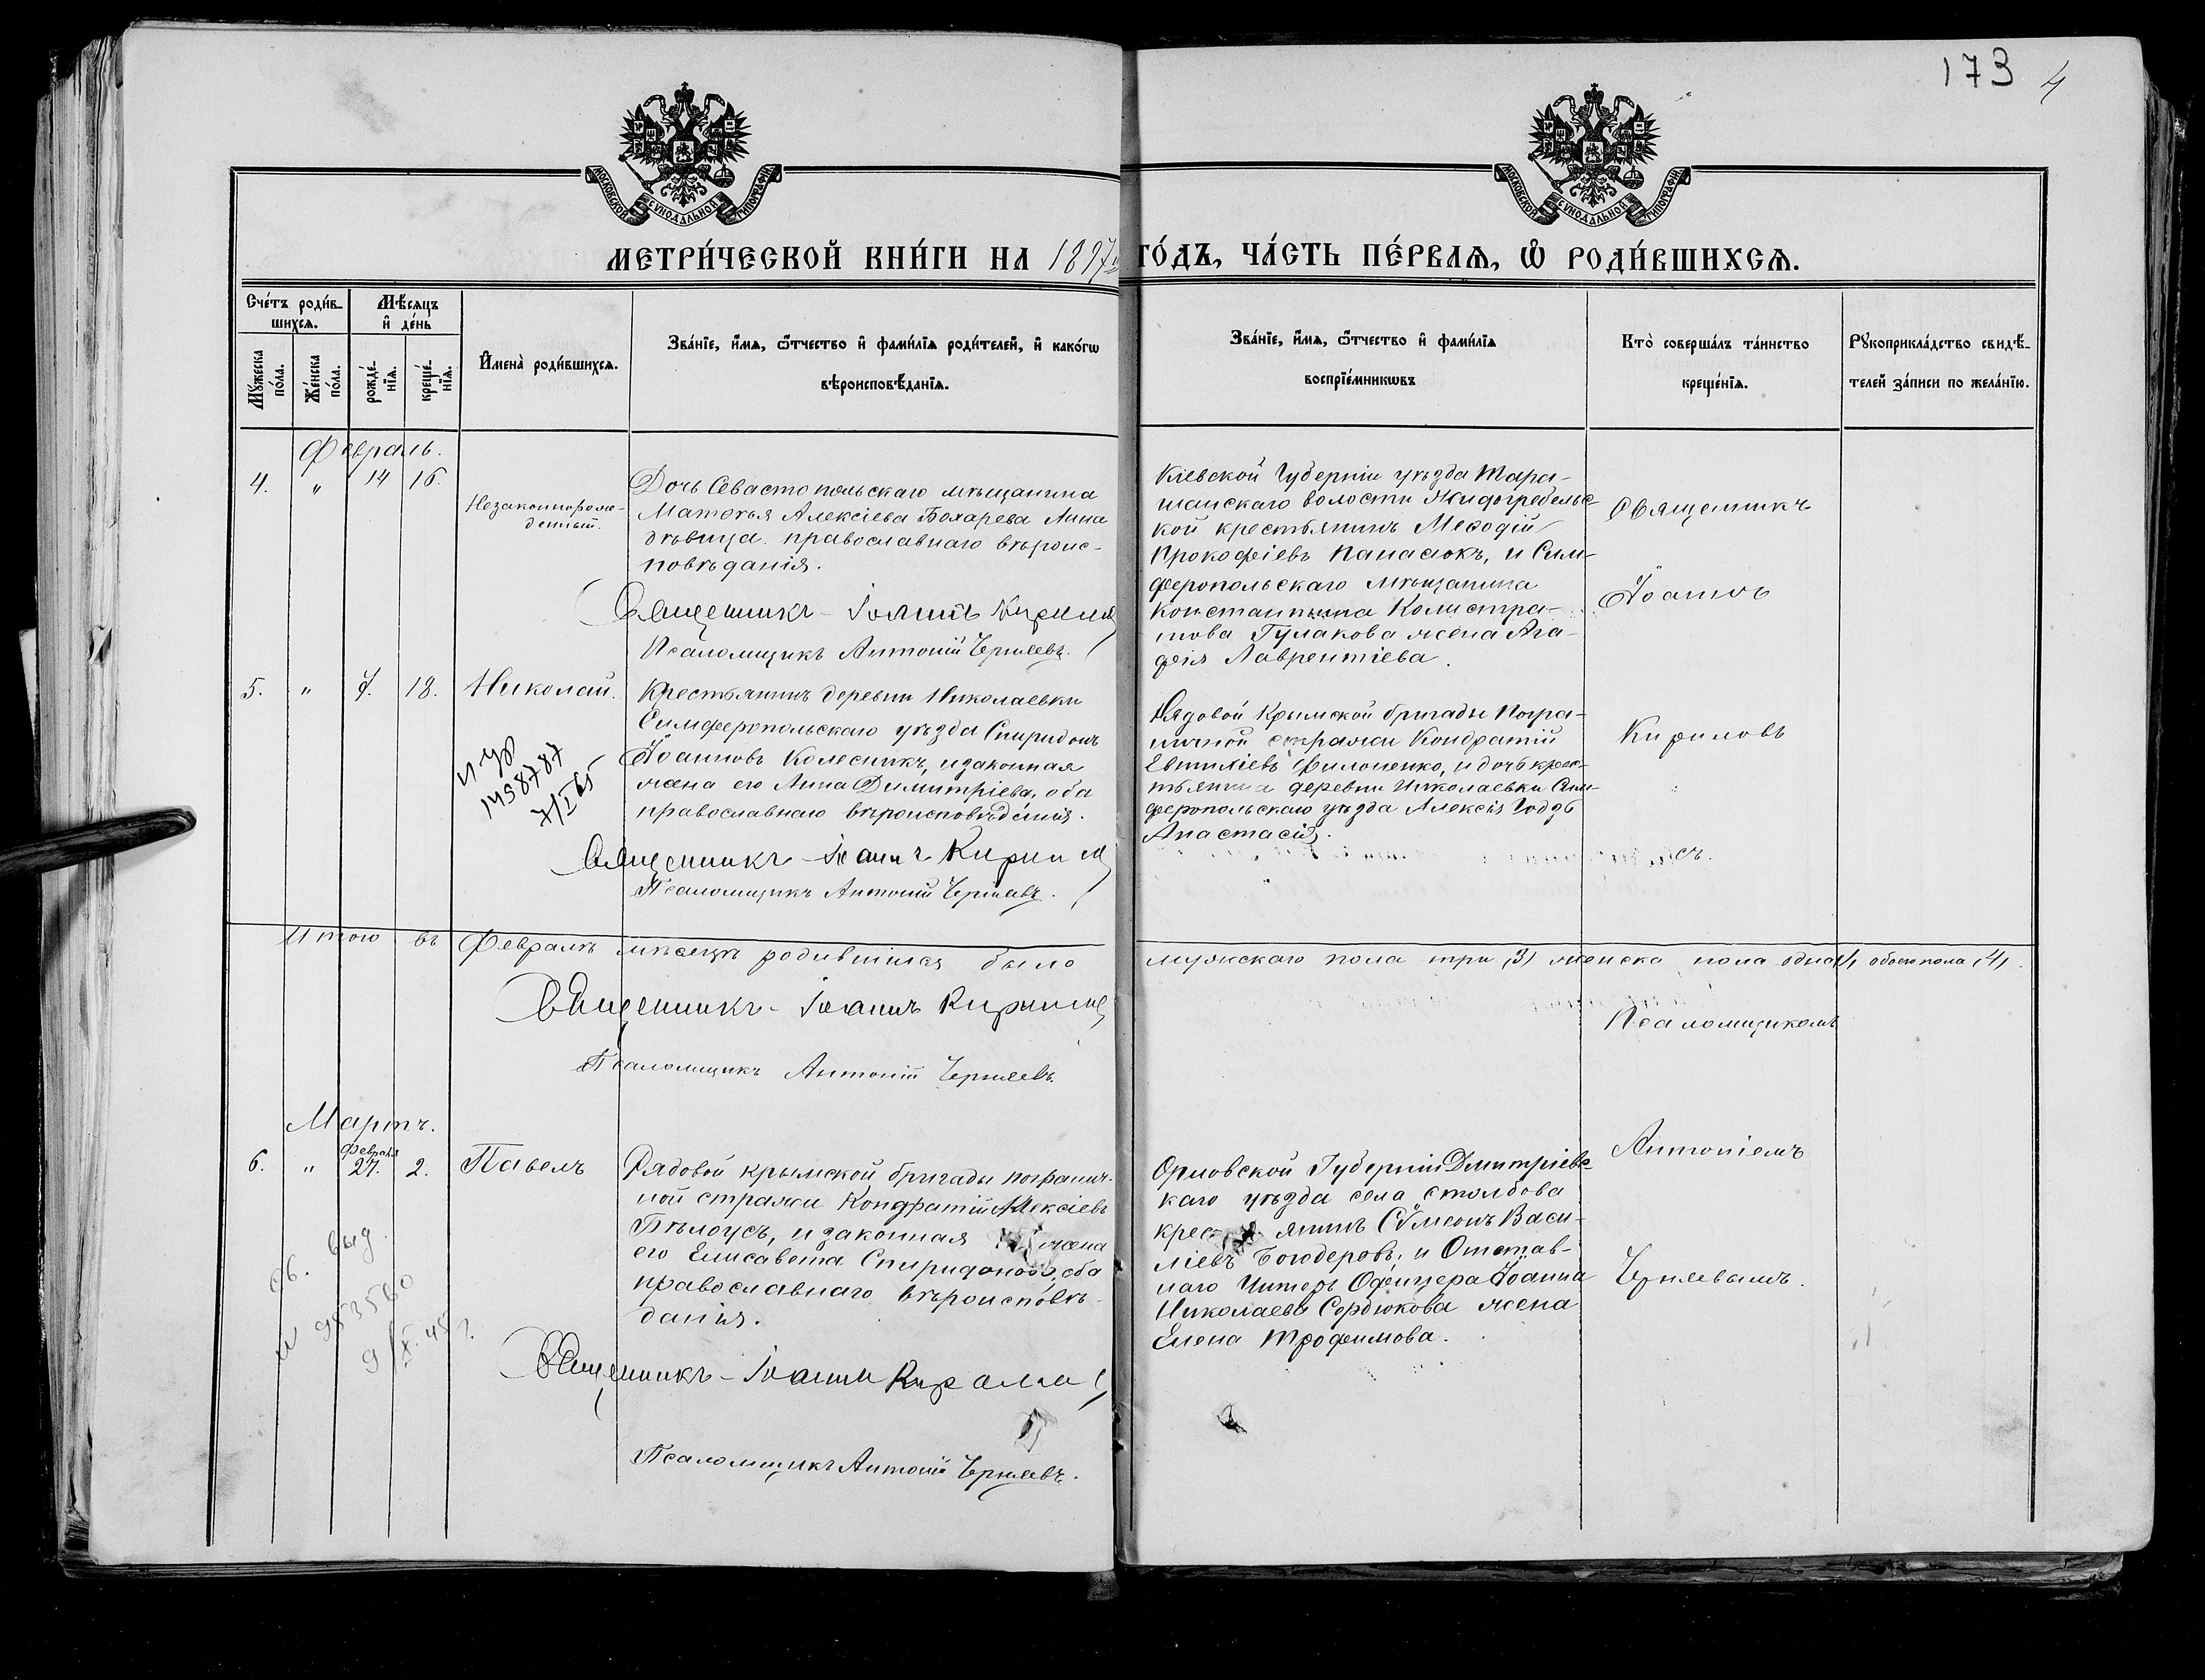 173 4
МОСКОВСКОЙ СѴНОДАЛЬНОЙ ТИПОГРАФІИ
МОСКОВСКОЙ СѴНОДАЛЬНОЙ ТИПОГРАФІИ
МЕТРИ́ЧЕСКОЙ КНИ́ГИ НА 1897й ГО́ДЪ, ЧА́СТЬ ПЕ́РВАѦ, Ѡ РОДИ́ВШИХСѦ.
Сче́тъ роди́в-
шихсѧ.
Мѣ́сѧцъ
и де́нь
Мꙋ́жеска по́ла.
Же́нска по́ла.
рожде́-нїѧ.
креще́-нїѧ.
Имена̀ роди́вшихсѧ.
Зва́нїе, и́мѧ, ѻ́тчество и фами́лїѧ роди́телей, и како́гѡ
вѣроисповѣ́данїѧ.
Зва́нїе, и́мѧ, ѻ́тчество и фами́лїѧ
воспрїе́мникѡвъ
Кто̀ соверша́лъ та́инство
креще́нїѧ.
Рꙋкоприкла́дство свидѣ́-
телей за́писи по жела́нїю.
Февраль.
4. " 14 16.
Незаконнорож-
денный.
Дочь Севастопольскаго мѣщанина
Матѳѣя Алексіева Бохарева Анна
дѣвица. православнаго вѣроис-
повѣданія.
Священникъ - Іоаннъ Кирилов
Псаломщикъ Антоній Черняевъ.
Кіевской Губерніи уѣзда Тара-
щанскаго волости Жидогребельс-
кой крестьянинъ Меѳодій
Прокофіевъ Панасюкъ, и Сим-
феропольскаго мѣщанина
Константина Калистра-
това Гулакова жена Ага-
фія Лаврентіева.
Священникъ
Іоаннъ
5. " 7. 18. Николай.
Крестьянинъ деревни Николаевки
Симферопольскаго уѣзда Спиридонъ
Іоанновъ Колесникъ, и законная
жена его Анна Димитріева, оба
православнаго вѣроисповѣданія.
Священникъ - Іоаннъ Кирилов
Псаломщикъ Антоній Черняевъ.
Рядовой Крымской бригады Погра-
ничной стражи Кондратій
Евтихіевъ Филоненко, и дочь крес-
тьянина деревни Николаевки Сим-
феропольскаго уѣзда Алексія Годзь
Анастасія.
Кириловъ
Итого въ Февралѣ мѣсяцѣ родившихся было мужскаго пола три (3) женска пола одна (1) обоего пола (4).
Священникъ - Іоаннъ Кирилов
Псаломщикъ Антоній Черняевъ.
Псаломщикомъ
Мартъ.
Февраля
6. " 27. 2. Павелъ
Рядовой крымской бригады погранич-
ной стражи Кондратій Алексіевъ
Бѣлоусъ, и законная жена
его Елисавета Спиридонова, оба
православнаго вѣроисповѣ-
данія.
Священникъ - Іоаннъ Кирилов
Псаломщикъ Антоній Черняевъ.
Орловской Губерніи Дмитріевс-
каго уѣзда села Столбова
крестьянинъ Сѵмеонъ Васи-
ліевъ Богодеровъ, и Отстав-
наго Унтеръ Офицера Іоанна
Николаева Сердюкова жена
Елена Трофимова.
Антоніемъ
Черняевымъ.